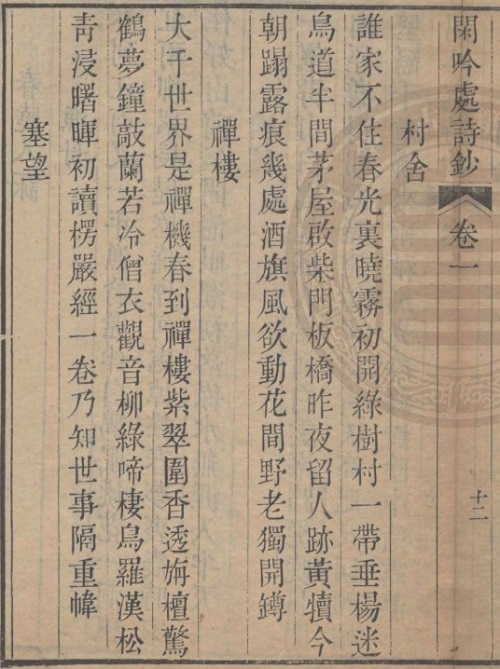 閑吟處詩鈔 卷一 十二
村舍
誰家不住春光裏曉霧初開綠樹村一帶垂楊迷
鳥道半間茅屋啟柴門板橋昨夜留人跡黃犢今
朝蹋露痕幾處酒旗風欲動花間野老獨開罇
禪樓
大千世界是禪機春到禪樓紫翠圍香透旃檀驚
鶴夢鐘敲蘭若冷僧衣觀音柳綠啼棲鳥羅漢松
靑浸曙暉初讀楞嚴經一卷乃知世事隔重幃
塞望